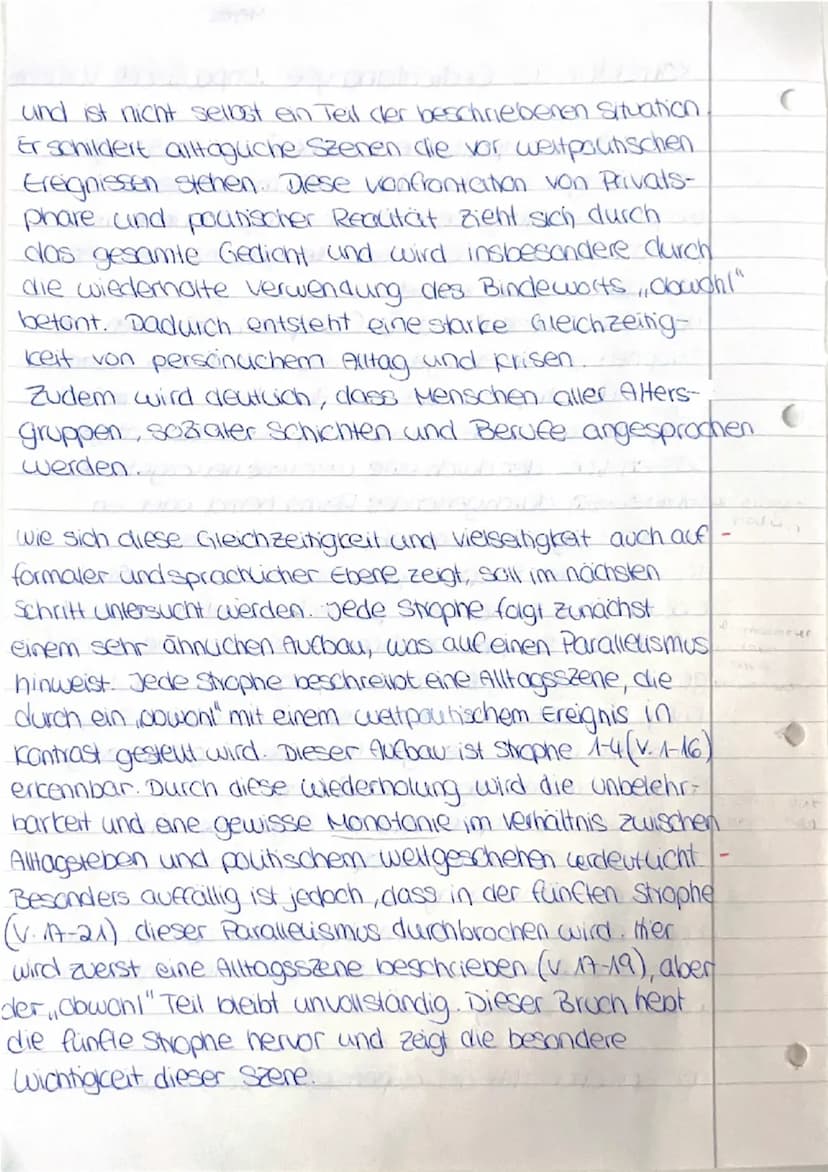 und ist nicht selbst ein Teil der beschriebenen Situation.
Er schildert alltägliche Szenen die vor weltpolitischen
Ereignissen stehen. Diese Konfrontation von Privats-
phäre und politischer Realität zieht sich durch
das gesamte Gedicht und wird insbesondere durch
die wiederholte Verwendung des Bindeworts „obwohl"
betont. Dadurch entsteht eine starke Gleichzeitig-
keit von persönlichem Alltag und Krisen.
Zudem wird deutlich, dass Menschen aller Alters-
gruppen, sozialer Schichten und Berufe angesprochen
werden.
Wie sich diese Gleichzeitigkeit und Vielseitigkeit auch auf -
formaler und sprachlicher Ebene zeigt, soll im nächsten
Schritt untersucht werden. Jede Strophe folgt zunächst
einem sehr ähnlichen Aufbau, was auf einen Parallelismus
hinweist. Jede Strophe beschreibt eine Alltagsszene, die
durch ein „obwohl" mit einem weltpolitischem Ereignis in
Kontrast gestellt wird. Dieser Aufbau ist Strophe 1-4 (V. 1-16)
erkennbar. Durch diese Wiederholung wird die Unbelehr-
barkeit und eine gewisse Monotonie im Verhältnis zwischen
Alltagsleben und politischem Weltgeschehen verdeutlicht. -
Besonders auffällig ist jedoch, dass in der fünften Strophe
(V. 17-21) dieser Parallelismus durchbrochen wird. Hier
wird zuerst eine Alltagsszene beschrieben (V. 17-19), aber
der „obwohl" Teil bleibt unvollständig. Dieser Bruch hebt
die fünfte Strophe hervor und zeigt die besondere
Wichtigkeit dieser Szene.